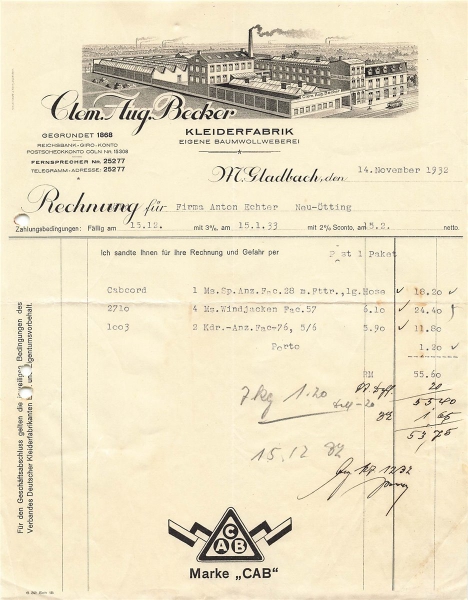 Clem. Aug. Becker
KLEIDERFABRIK
EIGENE BAUMWOLLWEBEREI
GEGRÜNDET 1868
REICHSBANK-GIRO-KONTO
POSTSCHECKKONTO CÖLN Nr. 15308
FERNSPRECHER Nr. 25277
TELEGRAMM-ADRESSE: 25277
M. Gladbach, den 14. November 1932
Rechnung für Firma Anton Echter Neu-Ötting
Zahlungsbedingungen: Fällig am 15.12. mit 3% am 15.1.33 mit 2% Sconto am 15.2. netto.
Ich sandte Ihnen für Ihre Rechnung und Gefahr per Post 1 Paket
Cabcord 1 Ms.Sp.Anz.Fac.28 m. Fttr., lg. Hose 18.20
2710 4 Ms.Windjacken Fac.57 6.10 24.40
1003 2 Kdr.-Anz.Fac-76, 5/6 5.90 11.80
Porto 1.20
RM 55.60
20
7 kg 1.20
55 40
1.65
53,75
15.12
Für den Geschäftsabschluss gelten die jeweiligen Bedingungen des
Verbandes Deutscher Kleiderfabrikanten Eigentumsvorbehalt.
CAB
Marke „CAB"